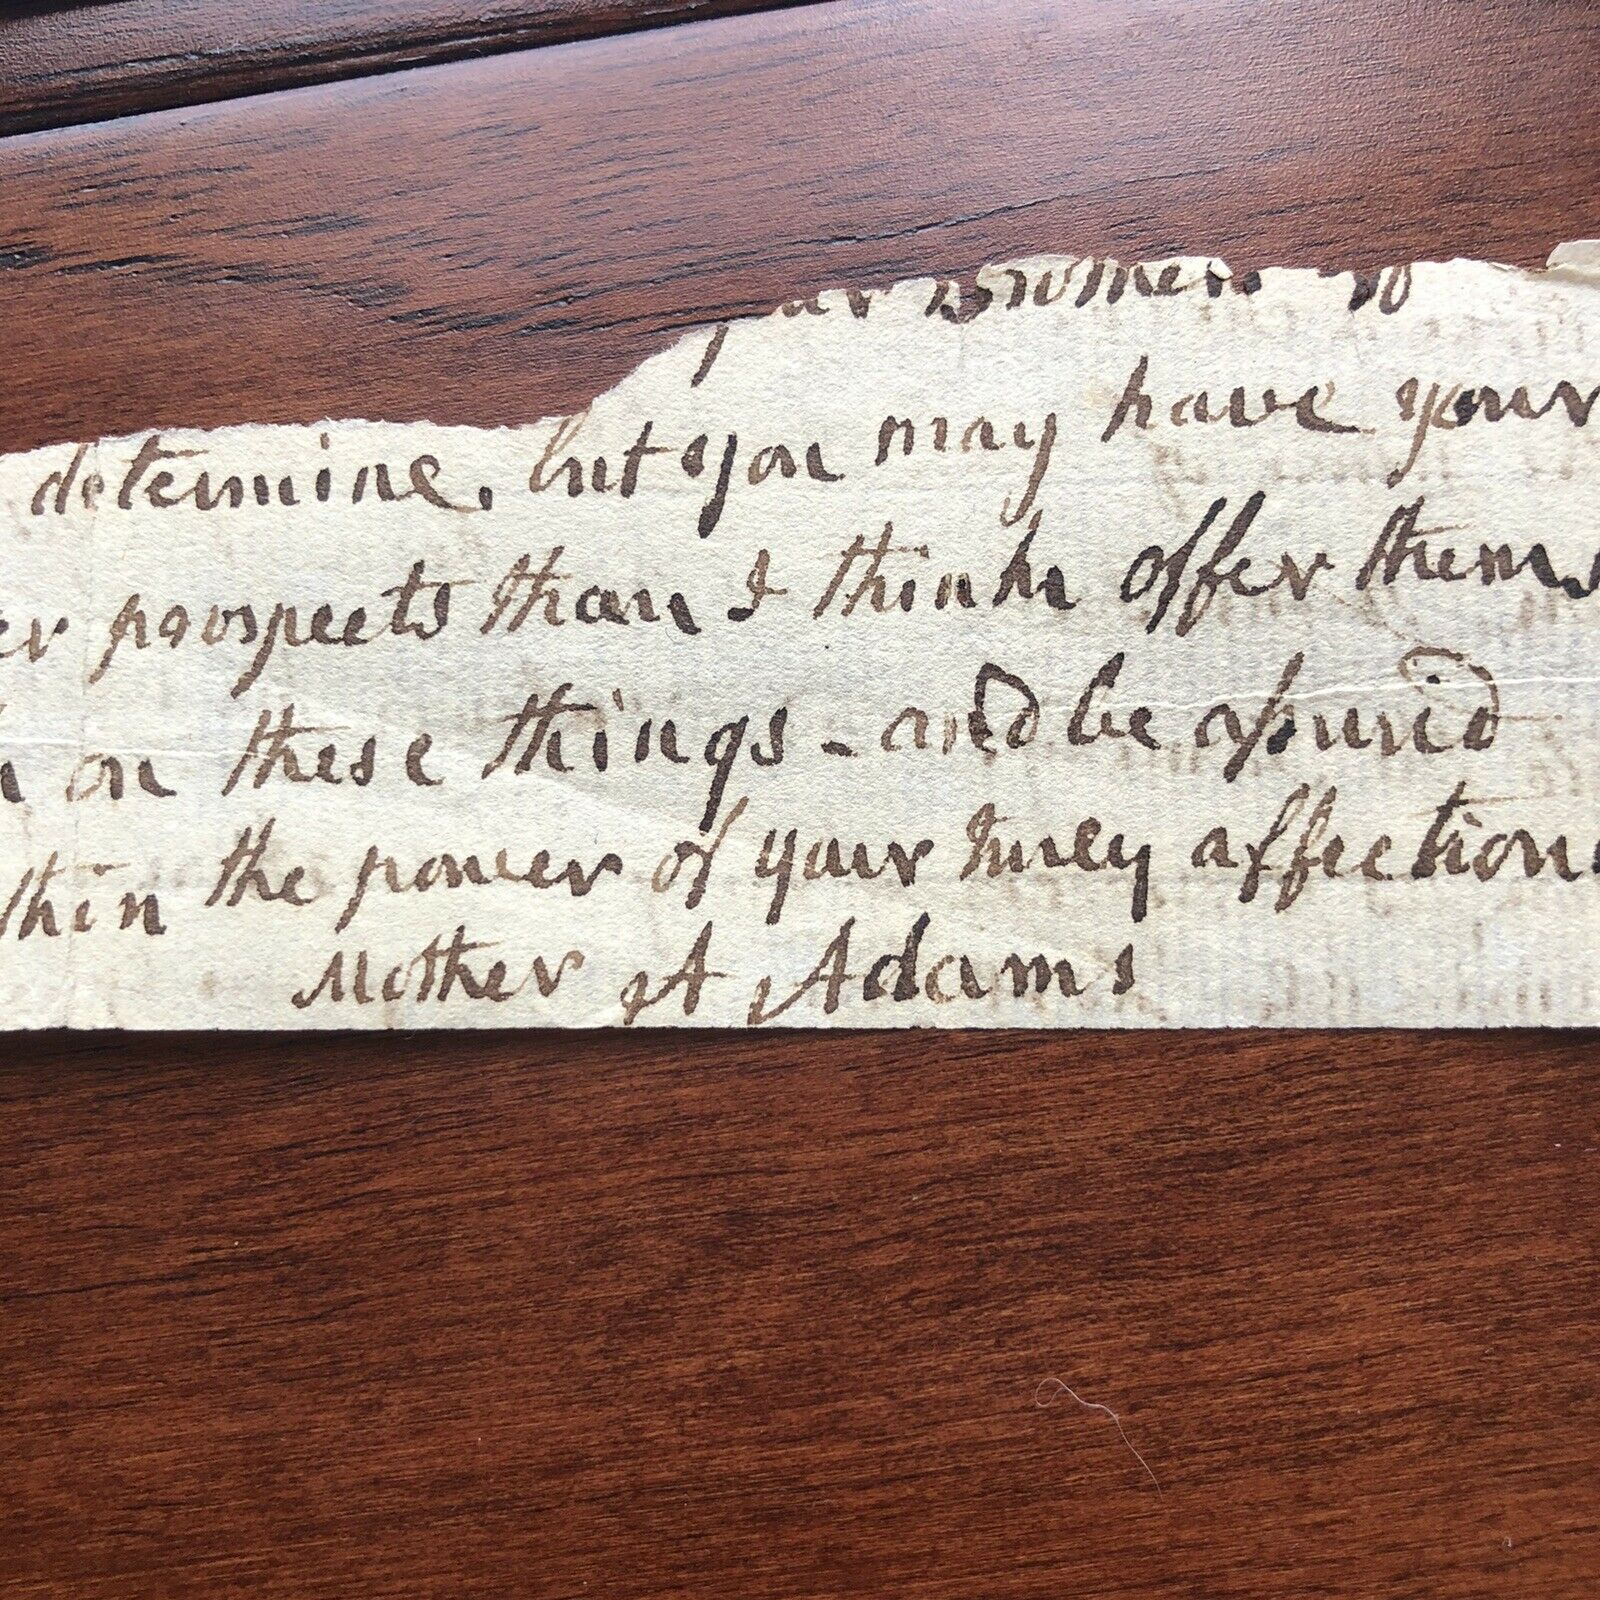 your women to
determine, but you may have your
er prospects than I think offer thems
h on these things - and be assured
thin the power of your truly affectiona
Mother A Adams